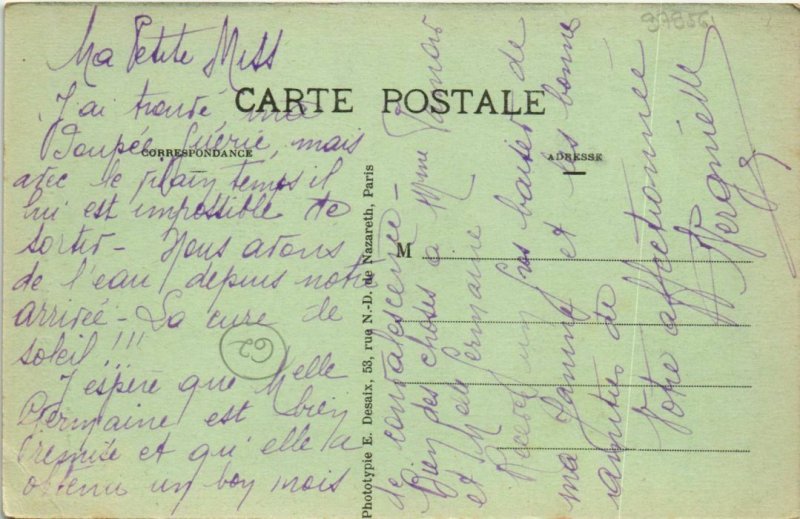 97856
Ma Petite Miss
CARTE POSTALE
J'ai trouvé ma
Poupée guérie, mais
CORRESPONDANCE
ADRESSE
avec le plain temps il
lui est impossible de
sortir - Nous avons
de l'eau depuis notre
arrivée - La cure de
soleil !!!
62
J'espère que Melle
Germaine est bien
remise et qu'elle a
obtenu un bon mois
de convalescence -
Bien des choses à Mme
et Melle Germaine
Recevez un gros baiser de
ma Jeanne et les bonnes
amitiés de
Votre affectionnée
M
Phototypie E. Desaix, 53, rue N.-D. de Nazareth, Paris